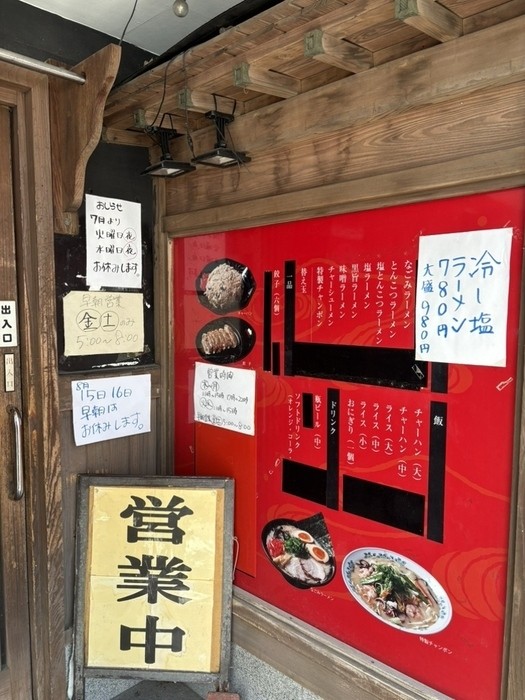 おしらせ
7月より
火曜日夜
水曜日夜
お休みします。
早朝営業
金土のみ
5:00〜8:00
8月
15日16日
早朝は
お休みします。
出入口
営業中
営業時間
冷し塩
ラーメン
780円
大盛980円
なごみラーメン
とんこつラーメン
塩とんこつラーメン
塩ラーメン
黒旨ラーメン
味噌ラーメン
チャーシューメン
特製チャンポン
替え玉
一品
餃子(六個)
飯
チャーハン(大)
チャーハン(中)
ライス(大)
ライス(中)
ライス(小)
おにぎり(一個)
ドリンク
瓶ビール(中)
ソフトドリンク
(オレンジ・コーラ)
なごみラーメン
特製チャンポン